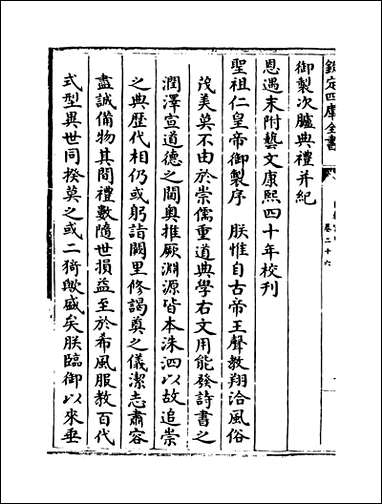 欽定四庫全書
卷二十六
御製次臚典禮并紀
恩遇末附藝文康熙四十年校刊
聖祖仁皇帝御製序 朕惟自古帝王聲教翔洽風俗
茂美莫不由於崇儒重道典學右文用能發詩書之
潤澤宣道德之閫奥推厥淵源皆本洙泗以故追崇
之典歴代相仍或躬詣闕里修謁奠之儀潔志肅容
盡誠備物其間禮數隨世損益至於希風服教百代
式型異世同揆莫之或二猗歟盛矣朕臨御以來垂